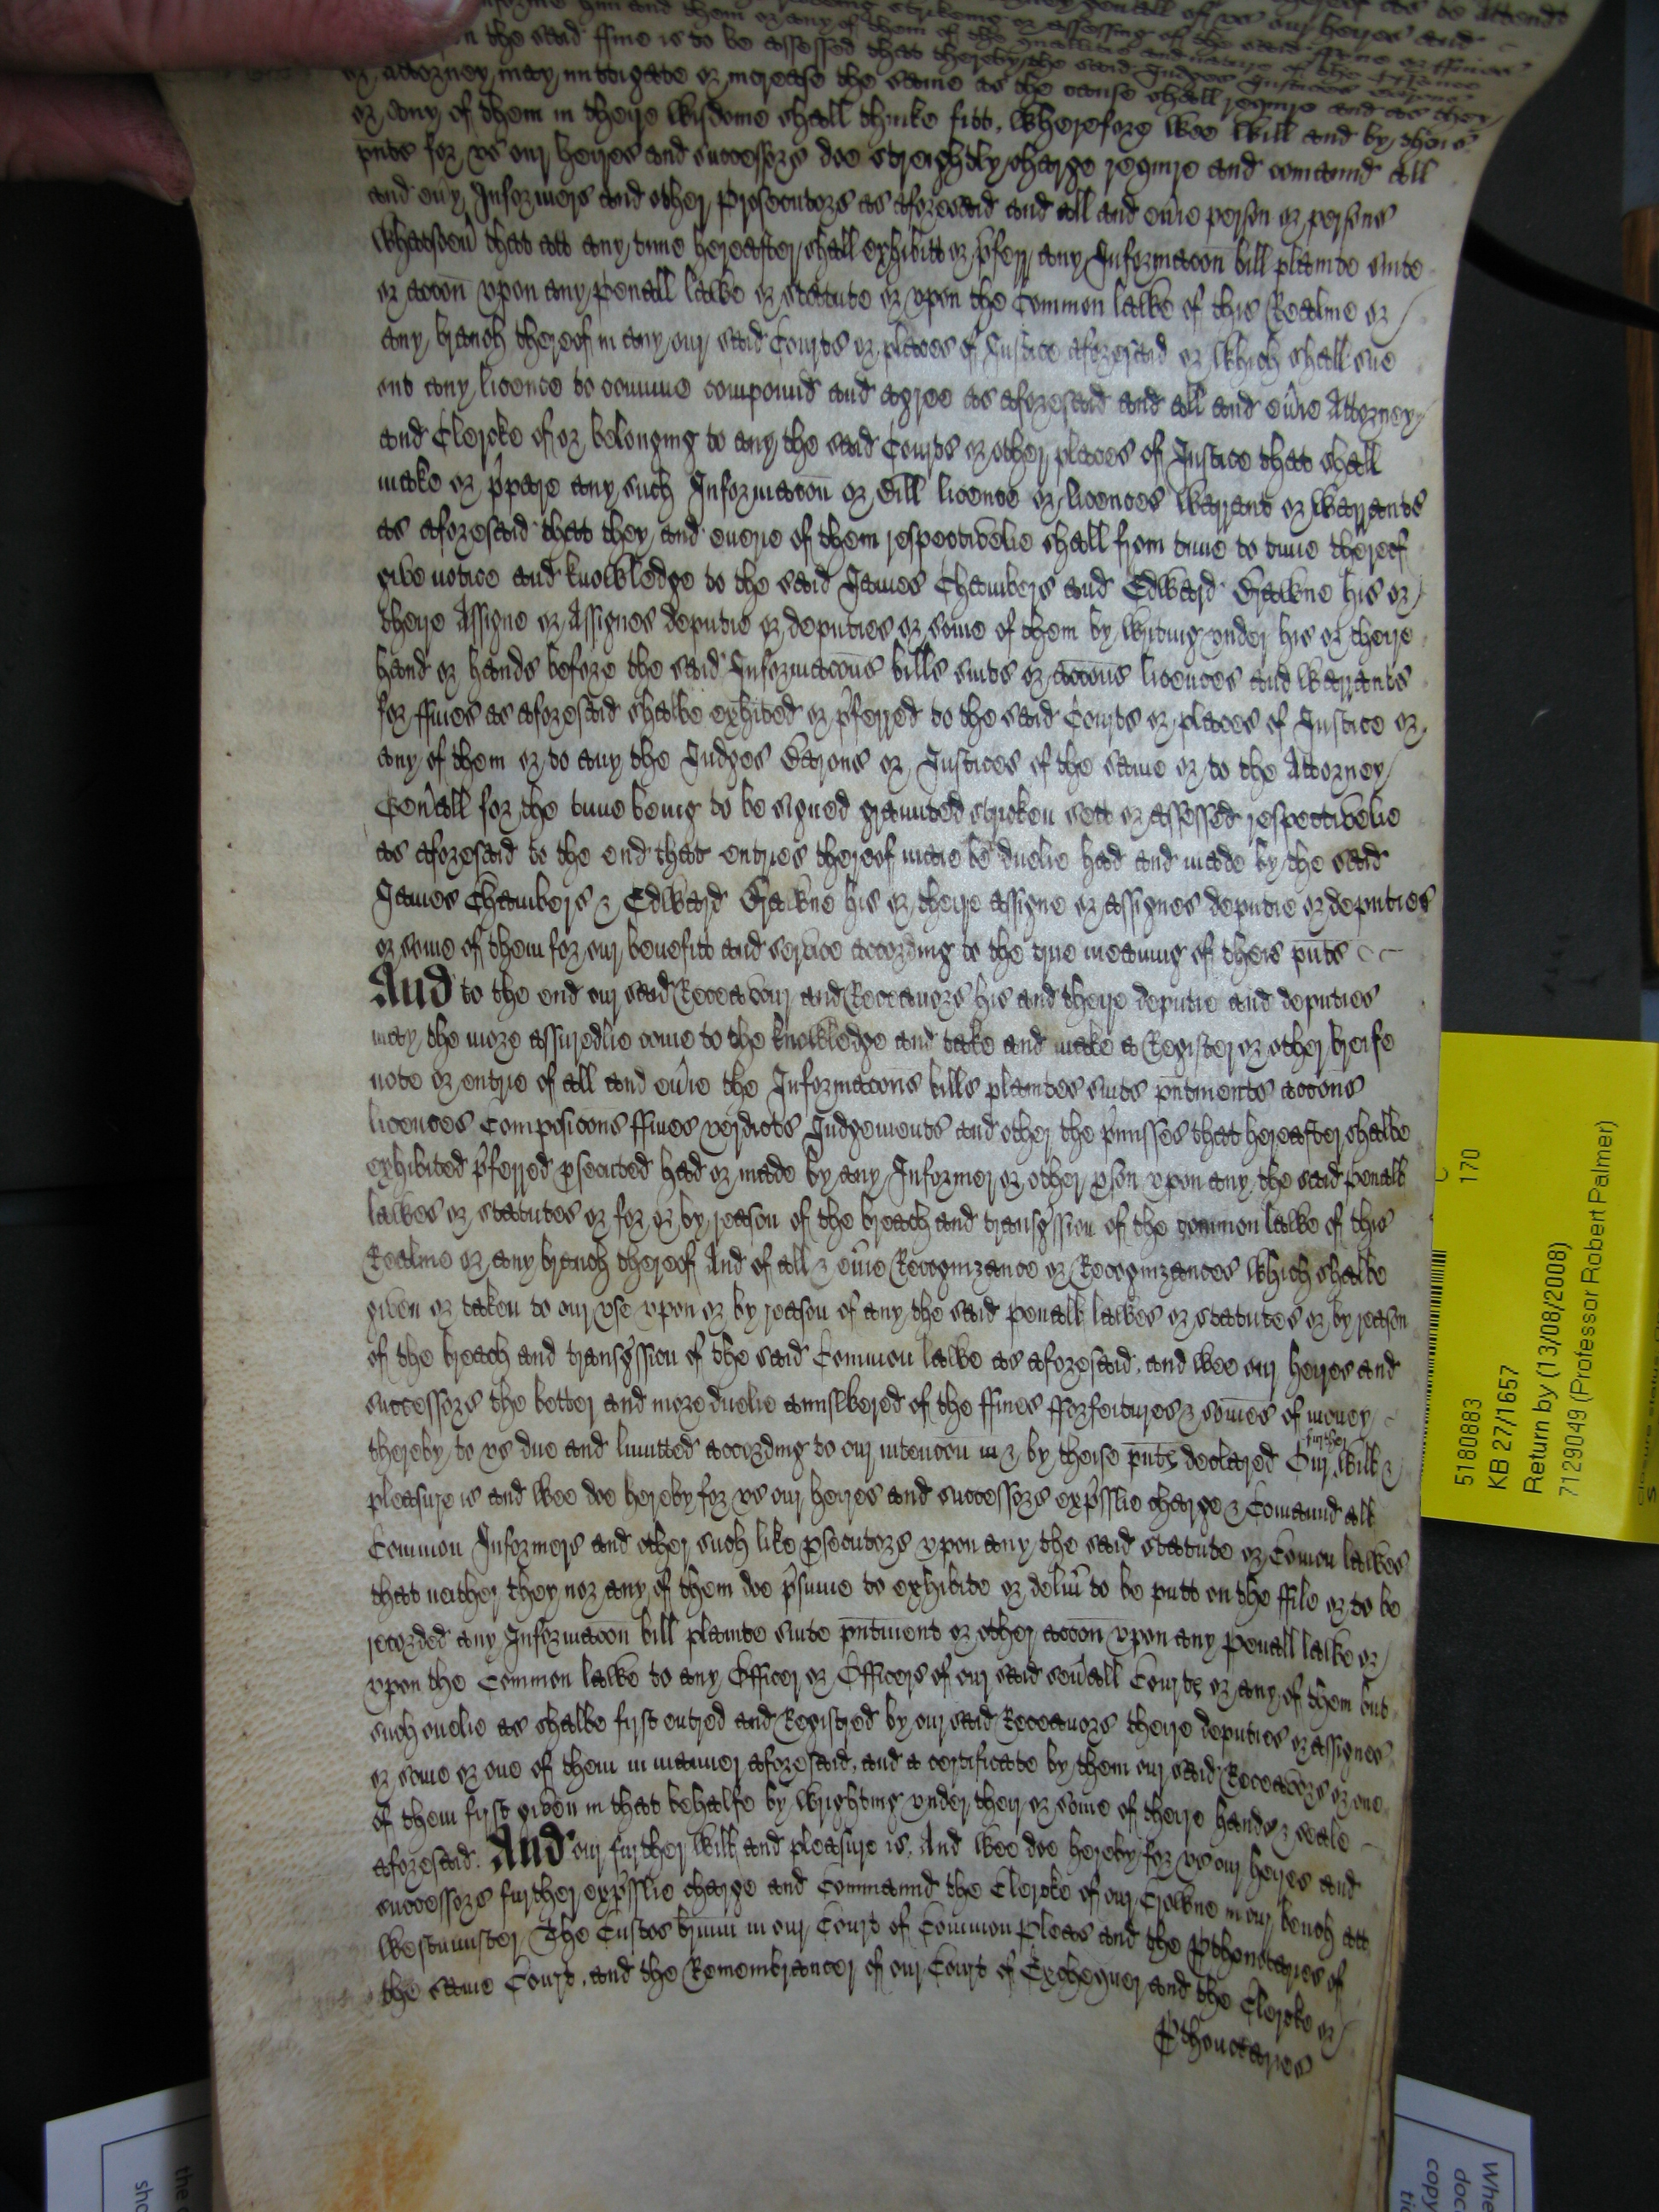 informe him and them or any of them of the quallitie and nature of the
the said ffine is to be assessed that thereby the said Judges Justices Barons
or Attorney may mittigate or increase the same as the cause shall require and as they
or any of them in theire wisdome shall thinke fitt. Wherefore wee will and by theis
pnts for vs our heires and successors doe streightly charge require and comaund all
and eu'y Informers and other prosecutors as aforesaid and all and eu'ie person or persons
whatsoeu' that att any time hereafter shall exhibitt or p'ferr any Informacon bill plainte suite
or accon vpon any penall lawe or statute or vpon the Common lawe of this Realme or
any branch thereof in any our said Courts or places of Justice aforesaid or which shall sue
out any licence to comune compound and agree as aforesaid and all and eu'ie Attorney
and Clercke of or belonging to any the said Courts or other places of Justice that shall
make or p'pare any such Informacon or Bill licence or licences warrant or warrants
as aforesaid that they and euerie of them respectivelie shall from time to time thereof
give notice and knowledge to the said James Chambers and Edward Brawne his or
theire Assigne or Assignes deputie or deputies or some of them by writing vnder his or theire
hand or hands before the said Informacons bills suits or accons licences and warrants
for ffines as aforesaid shalbe exhited or p'ferred to the said Courts or places of Justice or
any of them or to any the Judges Barons or Justices of the same or to the Attorney
Gen'all for the time being to be signed graunted stricken sett or assessed respectivelie
as aforesaid to the end that entries thereof maie be duelie had and made by the said
James Chambers & Edward Brawne his or theire assigne or assignes deputie or deputies
or some of them for our benefitt and service according to the true meaning of theis pnts
And to the end our said Receavour and Receauors his and theire deputie and deputies
may the more assuredlie come to the knowledge and take and make a Register or other breife
note or entrie of all and eu'ie the Informacons bills plaintes suits pntments accons
licences Composicons ffines verdicts Judgements and other the p'misses that hereafter shalbe
exhibited p'ferred psecuted had or made by any Informer or other pson vpon any the said penall
lawes or statutes or for or by reason of the breach and transg'ssion of the common lawe of this
Realme or any branch thereof And of all & eu'ie Recognizance or Recognizances which shalbe
given or taken to our vse vpon or by reason of any the said penall lawes or statutes or by reason
of the breach and transg'ssion of the said Common lawe as aforesaid. and wee our heires and
successors the better and more duelie aunswered of the ffines fforfeitures & somes of money
thereby to vs due and limitted according to our intencon in & by theise pnts declared Our further will &
pleasure is and wee doe hereby for vs our heires and successors exp'sslie charge & Comaund all
Common Informers and other such like psecutors vpon any the said statute or Comon lawes
that neither they nor any of them doe p'sume to exhibite or deliu' to be putt on the ffile or to be
recorded any Informacon bill plainte suite pntment or other accon vpon any penall lawe or
vpon the Common lawe to any Officer or Officers of our said seu'all Courts or any of them but
such onelie as shalbe first entred and Registred by our said Receauors theire deputies or assignes
or some or one of them in manner aforesaid. and a certificate by them our said Receavors or one
of them first given in that behalfe by wrighting vnder their or some of theire hands & seale
aforesaid. And our further will and pleasure is. And wee doe hereby for vs our heires and
successors further exp'sslie charge and Commaund the Clercke of our Crowne in our bench att
Westminster The Custos brium in our Court of Common Pleas and the Pthonotaries of
the same Court. and the Remembrancer of our Court of Exchequer and the Clercke or
Pthonotaries
170
5180883
KB 27/1657
Return by (13/08/2008)
71290049 (Professor Robert Palmer)